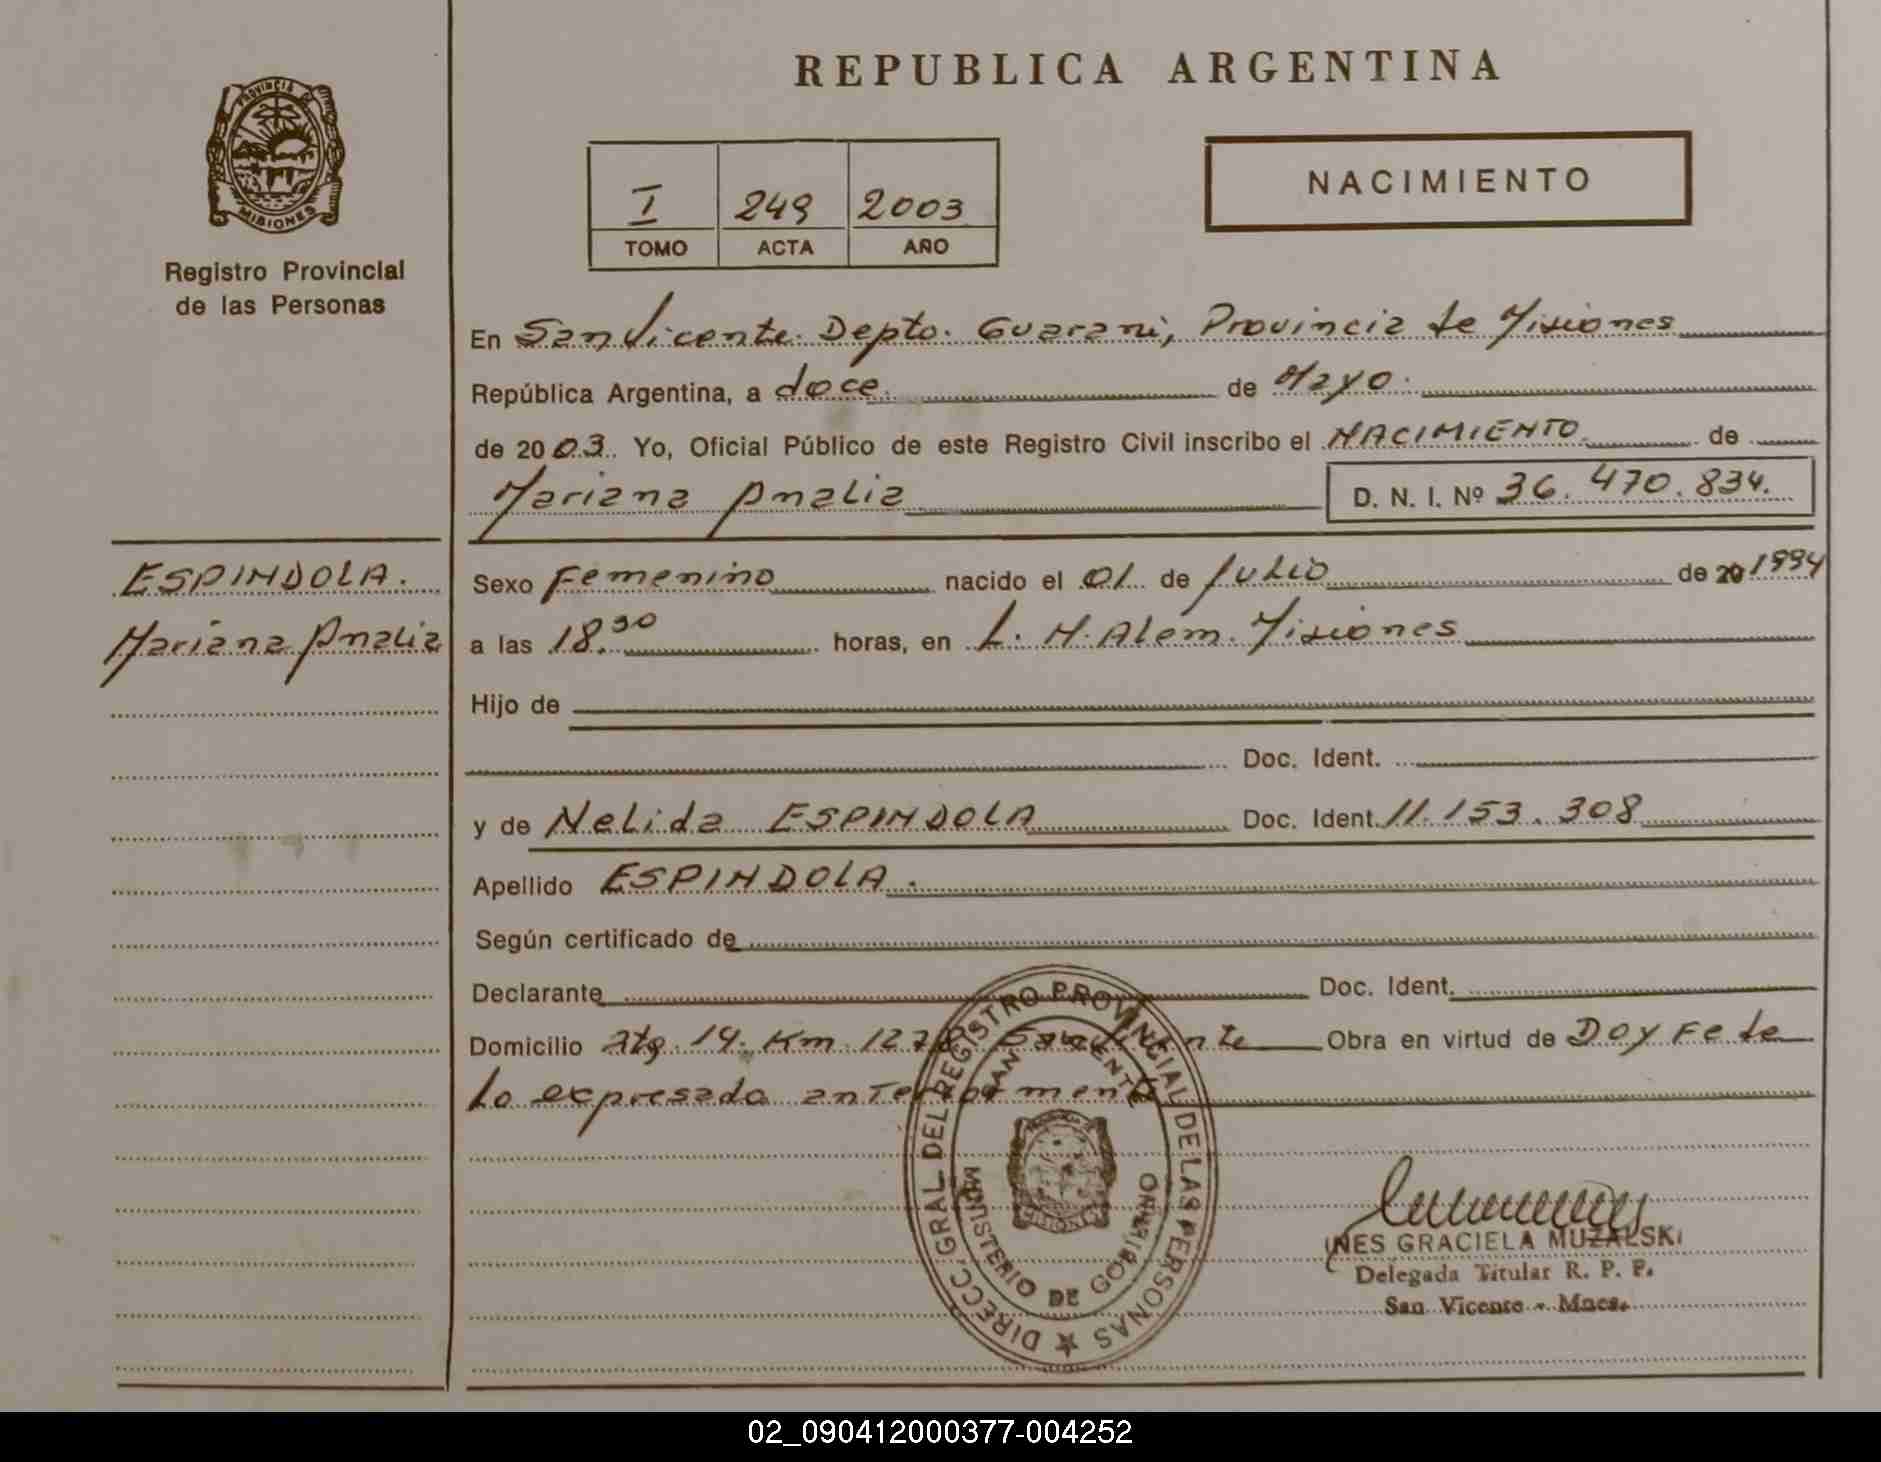 REPUBLICA ARGENTINA
PROVINCIA DE
MISIONES
Registro Provincial
de las Personas
I 249 2003
TOMO ACTA AÑO
NACIMIENTO
En San Vicente. Depto. Guarani, Provincia de Misiones
República Argentina, a doce. de Mayo.
de 2003. Yo, Oficial Público de este Registro Civil inscribo el NACIMIENTO. de
Mariana Analia D. N. I. Nº 36.470.834.
ESPINDOLA.
Mariana Analia
Sexo Femenino nacido el 01 de Julio de 20 1994
a las 18.30 horas, en L. N. Alem. Misiones
Hijo de
Doc. Ident.
y de Nelida ESPINDOLA Doc. Ident. 11.153.308
Apellido ESPINDOLA.
Según certificado de
Declarante Doc. Ident.
Domicilio 14. Km. 1278 San Vicente Obra en virtud de Doy Fe de
Lo expresado anteriormente
DIRECC. GRAL. DEL REGISTRO PROVINCIAL DE LAS PERSONAS
SAN VICENTE
MINISTERIO DE GOBIERNO
INES GRACIELA MUZALSKI
Delegada Titular R. P. P.
San Vicente - Mnes.
02_090412000377-004252